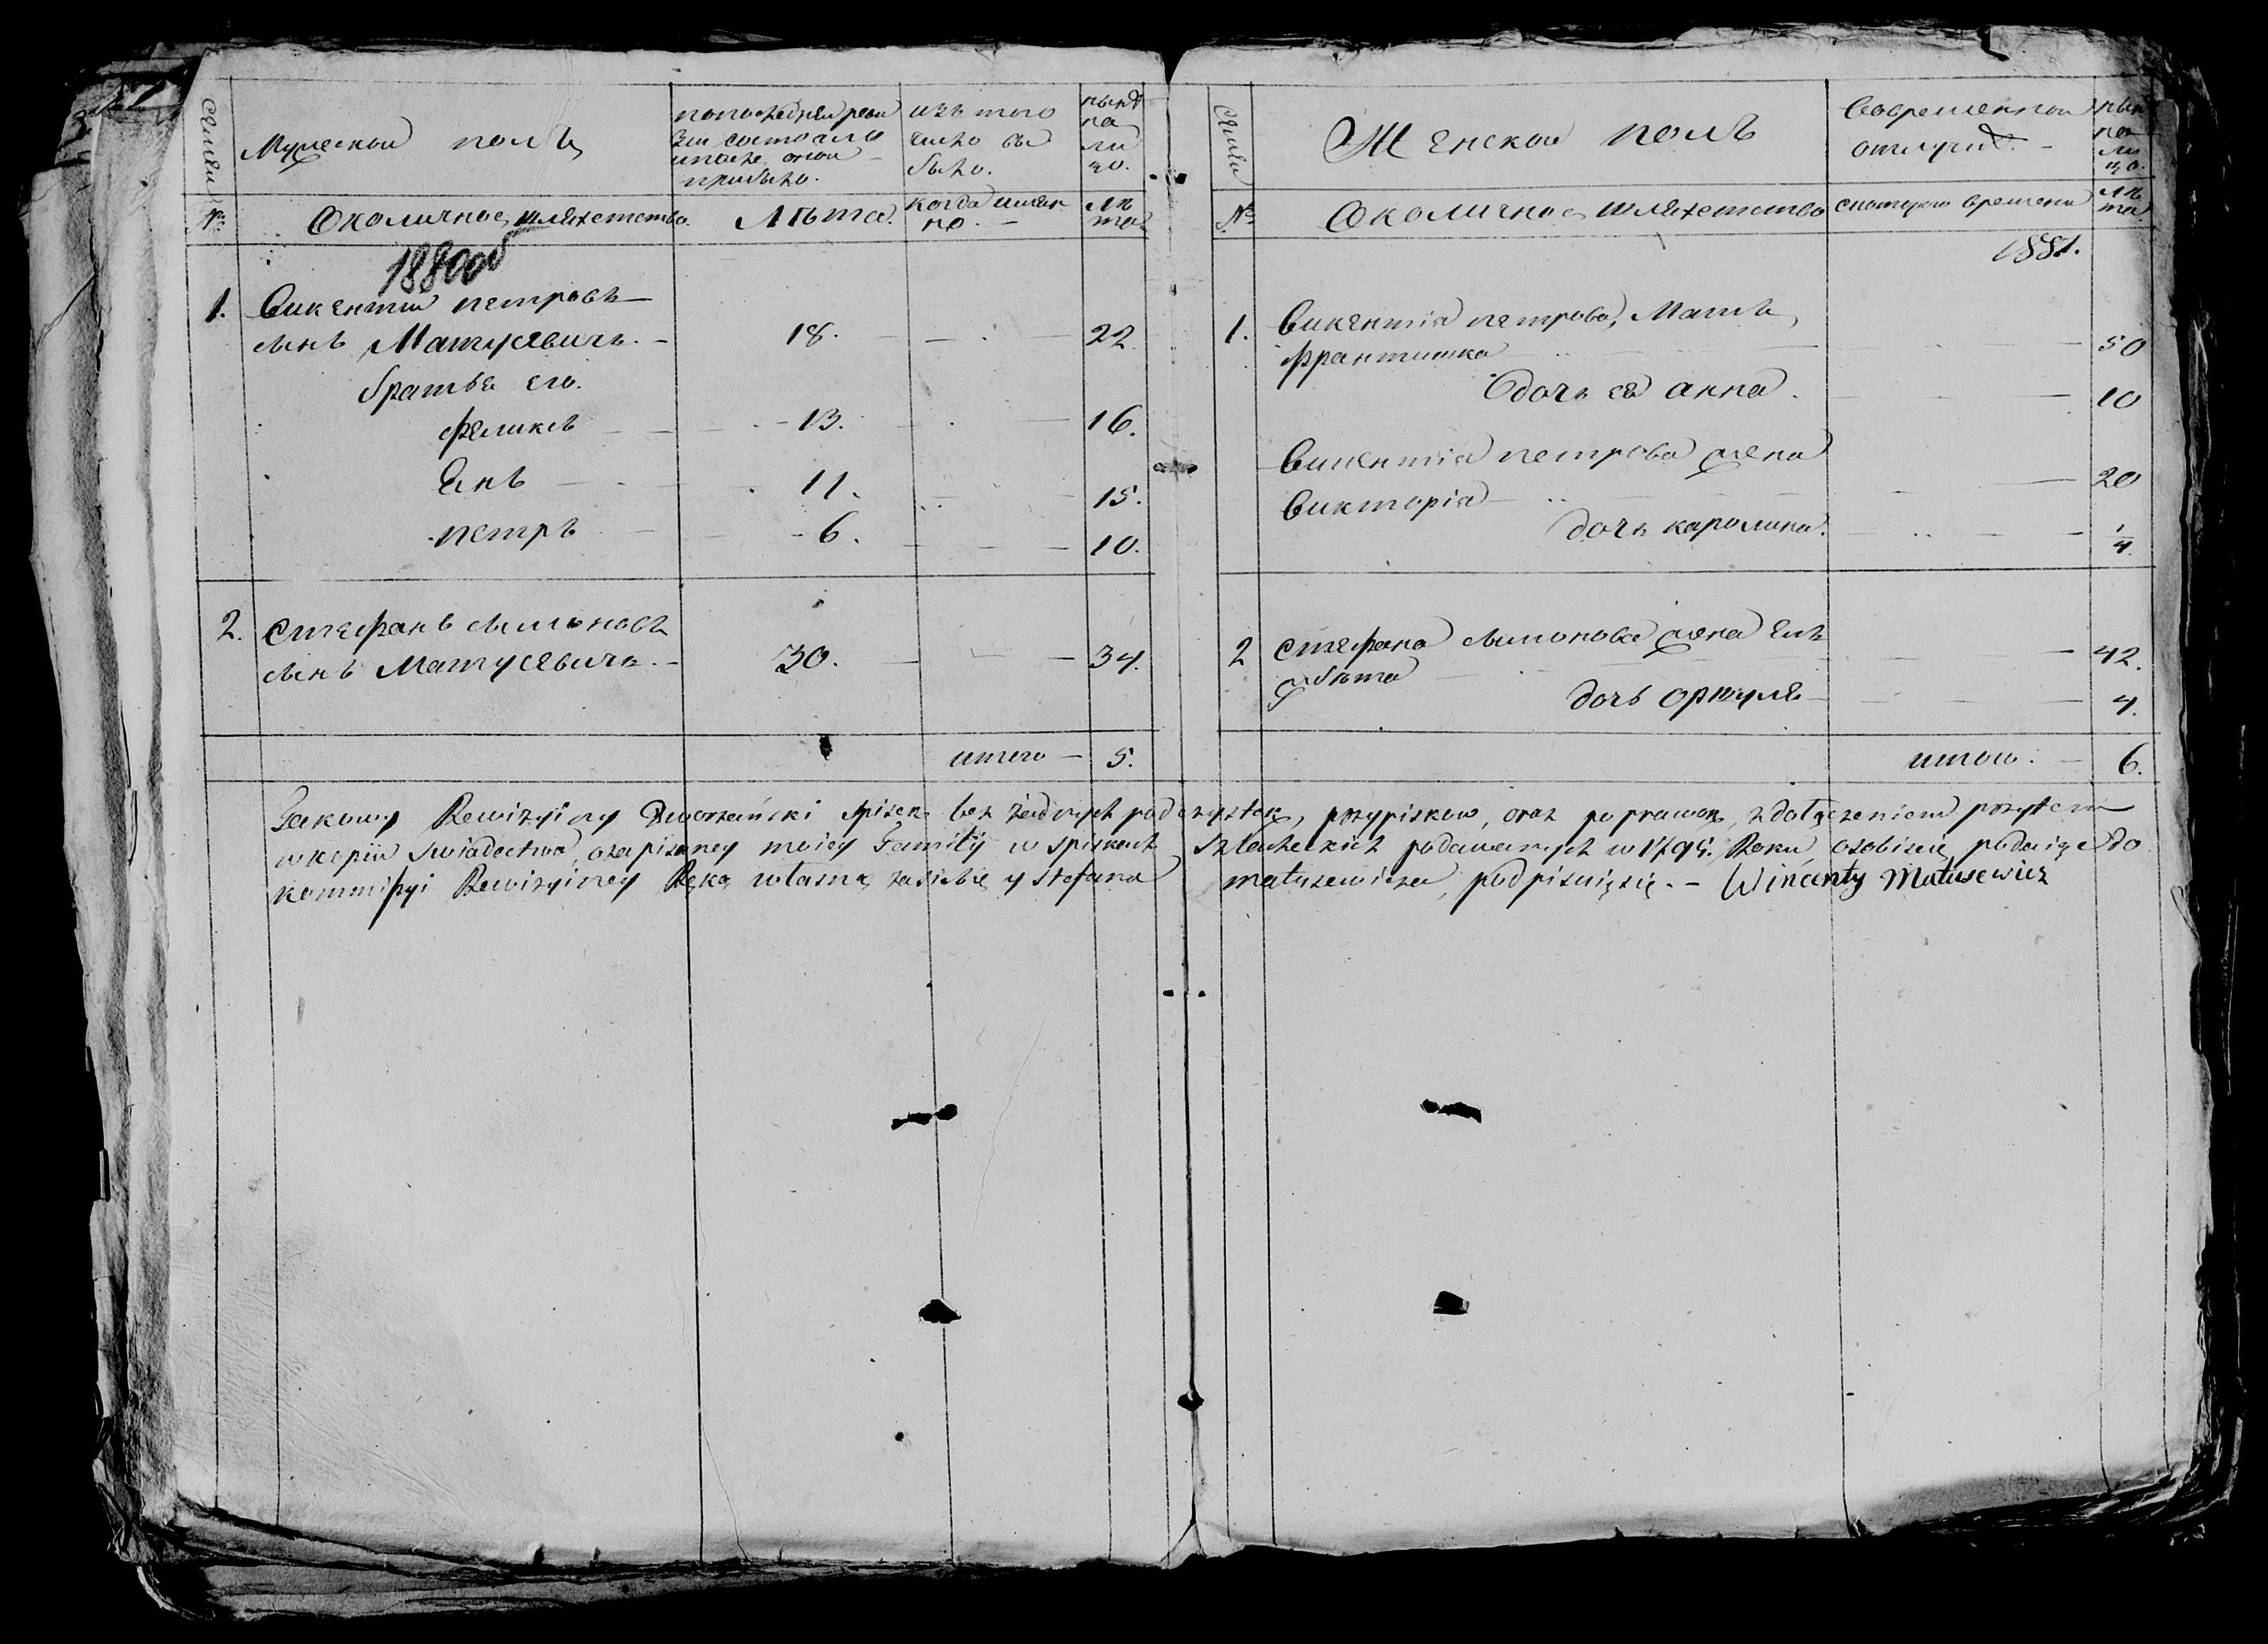 семьи
Мужескои полъ
попоследнеи реви
зіи состояло
ипосле онои
прибыло.
изъ того
числа вы
было.
нынѣ
на
ли
цо.
№:
Околичное шляхетство.
Лѣта.
когда имян
но. —
лѣ
та
1880 об
1. Викентіи петровъ
сынъ Матусевичъ. — 18. 22
братья его.
Феликсъ 13. 16.
Янъ 11. 15.
петръ 6. 10.
2. Стефанъ сымоновъ
сынъ Матусевичъ. — 30. 34.
итого — 5.
семьи
Женское полъ
Вовременнои
отлучкѣ. —
ны
на
ли
цо.
№
Околичное шляхетство
скотораго времени
лѣ
та
1881.
1. Викентія петрова, Мать
Франтишка 50
дочь ея анна. 10
Викентія петрова жена
Викторія 20
дочь каролина. 1/4
2 Стефана сымонова жена Ели
збѣта 42.
дочь оршуля 4.
итого. — 6.
Jakowy Rewizyiny Dworzański spisek bez żadnych podczystek, przypiskow, oraz poprawok, z dołączeniem przytem
w kopii Swiadectwa, ozapisaney moiey Familij w spiskach Szlacheckich podawanych w 1795. Roku, osobiscie podaiąc do
kommissyi Rewizyiney Ręką własną zasiebie y Stefana Matusewicza, podpisuięsię. — Wincenty Matusewicz